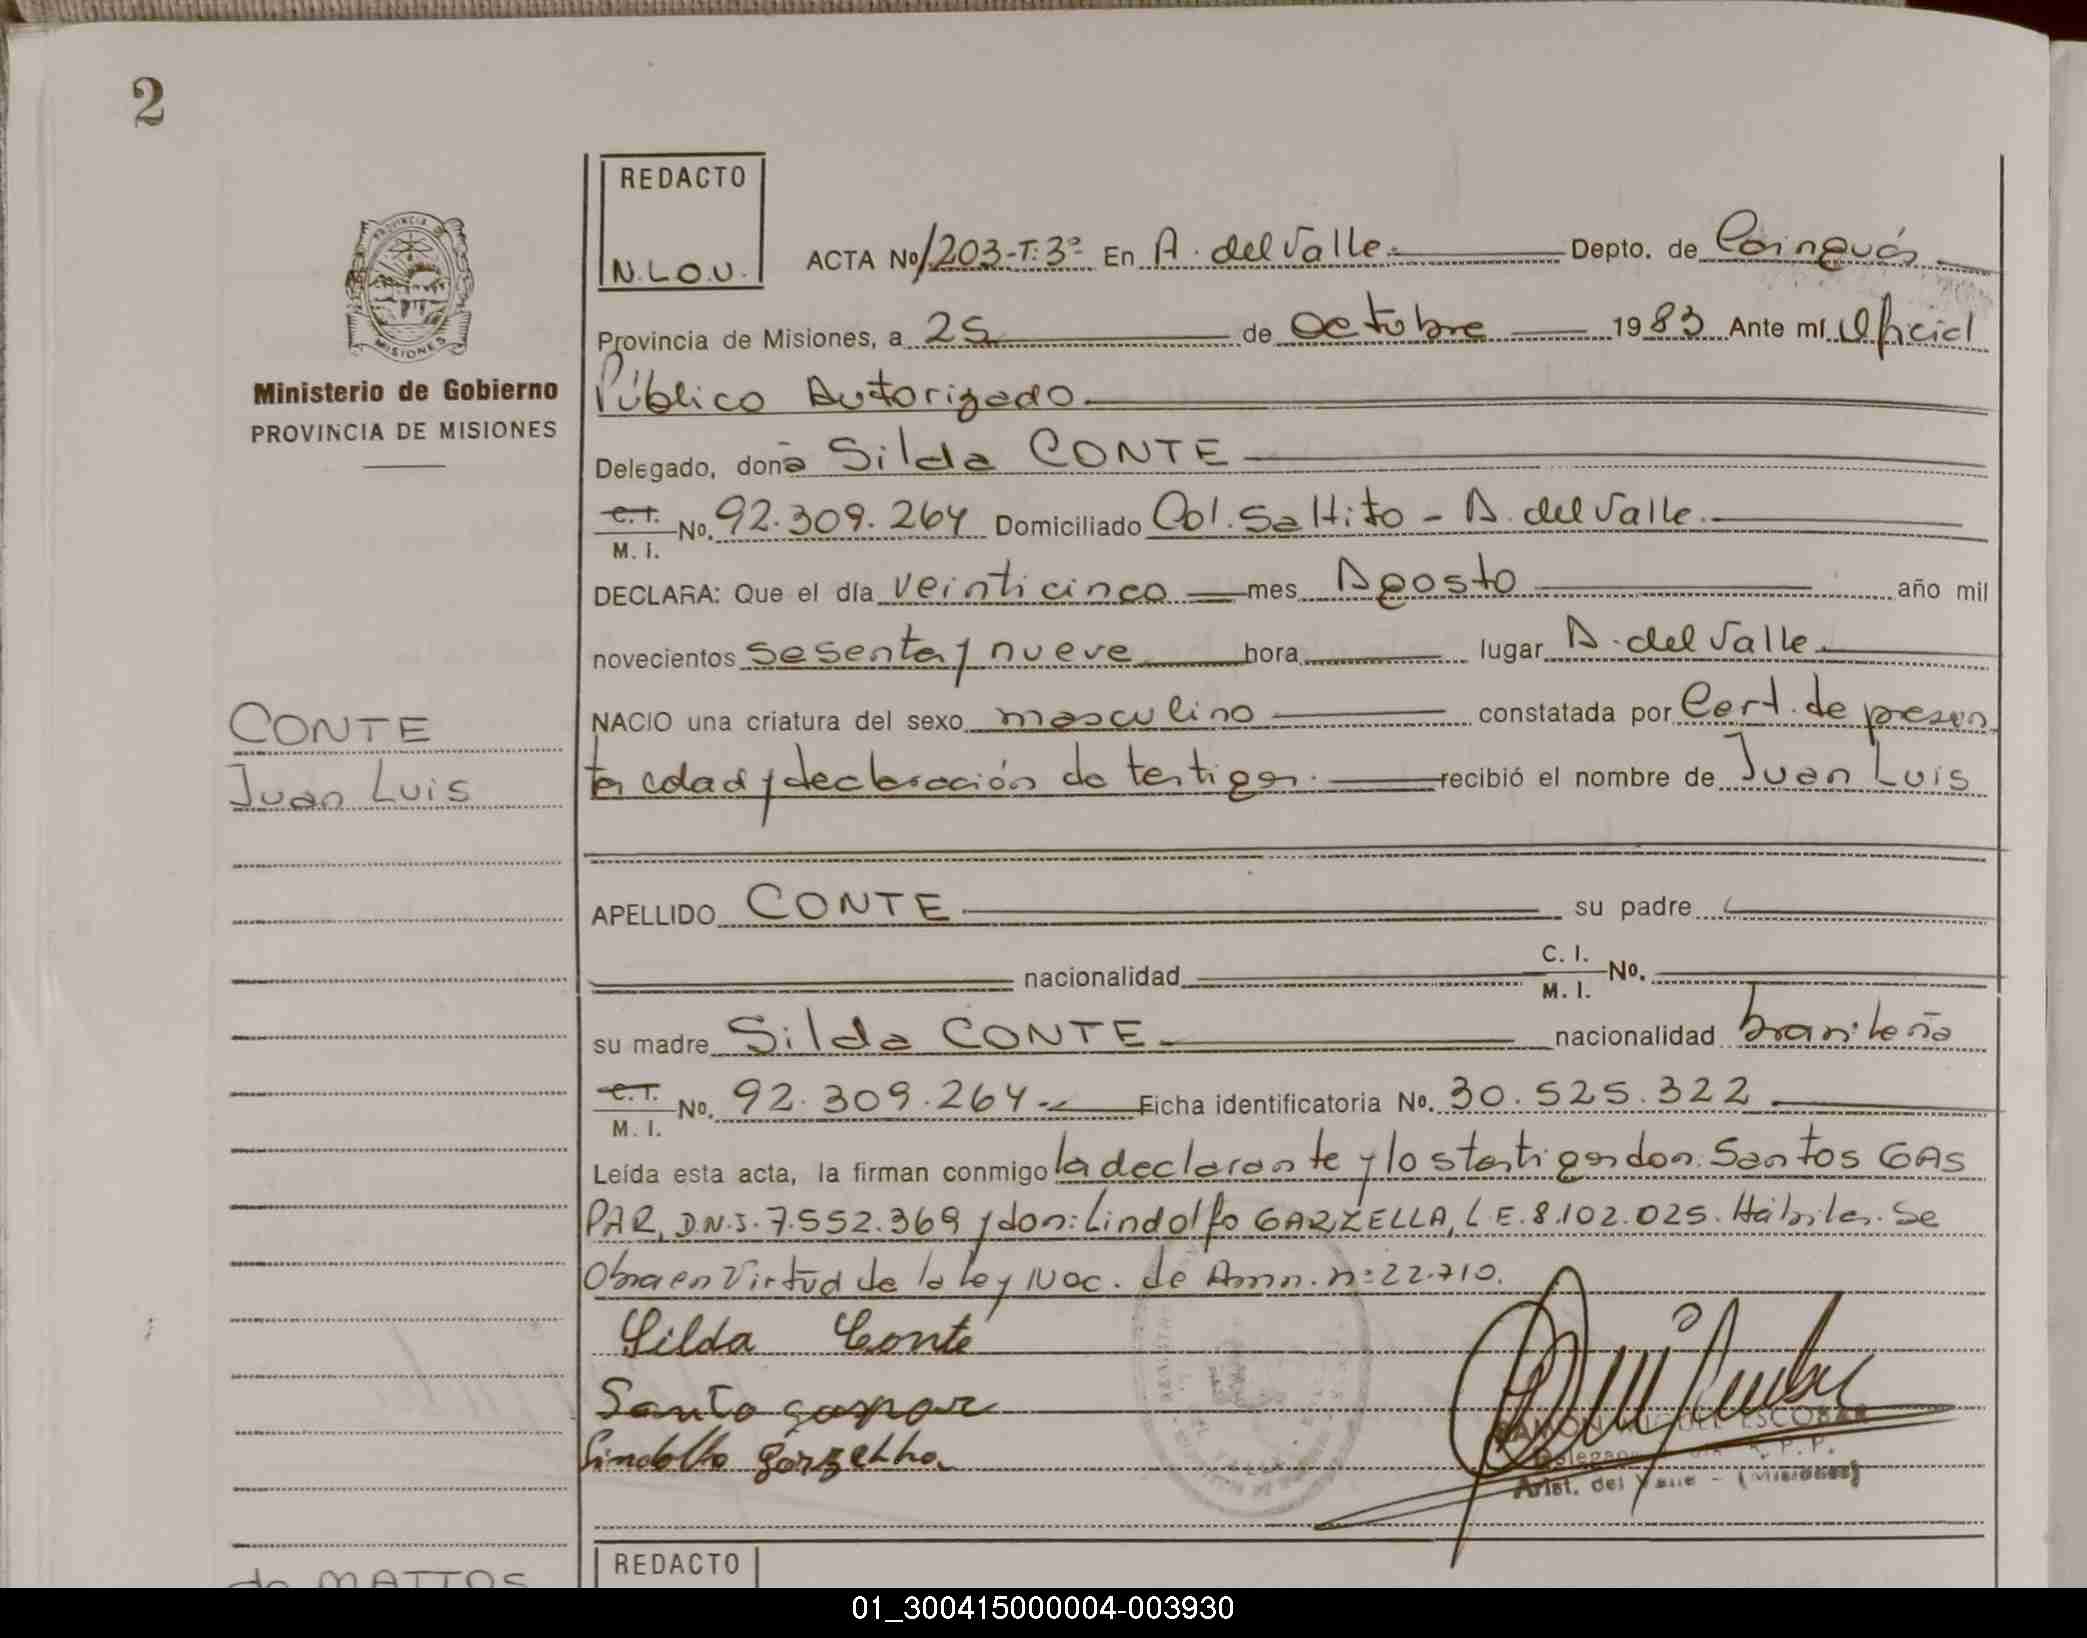 2
REDACTO
N.L.O.V.
PROVINCIA
MISIONES
Ministerio de Gobierno
PROVINCIA DE MISIONES
ACTA No 1203-T:3º En A. del Valle Depto. de Cainguás
Provincia de Misiones, a 25 de Octubre 1983 Ante mí Oficial
Público Autorizado
Delegado, doña Silda CONTE
C.I. M. I. No. 92.309.264 Domiciliado Col. Saltito - A. del Valle
DECLARA: Que el día veinticinco mes Agosto año mil
novecientos sesenta y nueve hora lugar A. del Valle
NACIO una criatura del sexo masculino constatada por Cert. de presun
ta edad y declaración de testigos. recibió el nombre de Juan Luis
CONTE
Juan Luis
APELLIDO CONTE su padre
nacionalidad C. I. M. I. No.
su madre Silda CONTE nacionalidad brasileña
C.I. M. I. No. 92.309.264 Ficha identificatoria No. 30.525.322
Leída esta acta, la firman conmigo la declarante y los testigos don: Santos GAS
PAR, D.N.I. 7.552.369 y don: Lindolfo GARZELLA, L.E. 8.102.025. Hábiles. Se
Obra en Virtud de la Ley Nac. de Amn. nº 22.710.
Silda Conte
Santo gaspar
Lindolfo
RAMON MIGUEL ESCOBAR
Delegado R. P. P.
Arist. del Valle - (Misiones)
REDACTO
de MATTOS
01_300415000004-003930